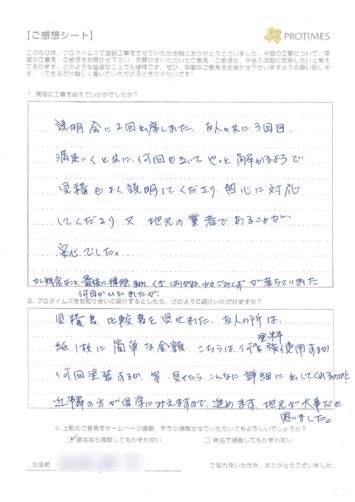 【ご感想シート】
PROTIMES
このたびは、プロタイムズで塗装工事をさせていただき誠にありがとうございました。今回の工事について、率
直なご意見・ご感想をお聞かせ下さい。お聞かせいただいたご意見・ご感想は、今後の活動に反映したいと考え
ております。どのような些細なことでも結構です。ぜひ、率直なご意見をお聞かせ下さいますようお願い致しま
す。(できるだけ詳しく書いていただけるとありがたいです)
1. 実際に工事を終えていかがでしたか?
説明会に2回出席しました。友人と共に3回目。
満足いくと共に何回も立って やっと理解かるようで
見積もよく説明してくださり、熱心に対応
してくださり、又 地元の業者であることが、
安心でした。
少し残念なこと 最後の掃除
が落ちていました
何回かいいましたが。
2. プロタイムズをお知り合いに紹介するとしたら、どのように紹介いただけますか?
見積書、比較書を見せました。友人の所は、
紙1枚に簡単な金額、こちらは 何塗料使用するか
何回塗装するか、等 見せたら こんなに詳細に出してくれるのかと
近隣の方が見学にみえますので、進めます。地元が大事だと
思いました。
※上記のご意見をホームページ掲載、チラシ掲載させていただいてもよろしいでしょうか?
☑匿名なら掲載してもかまわない □実名で掲載してもかまわない
お名前
ご協力をいただき、ありがとうございました。